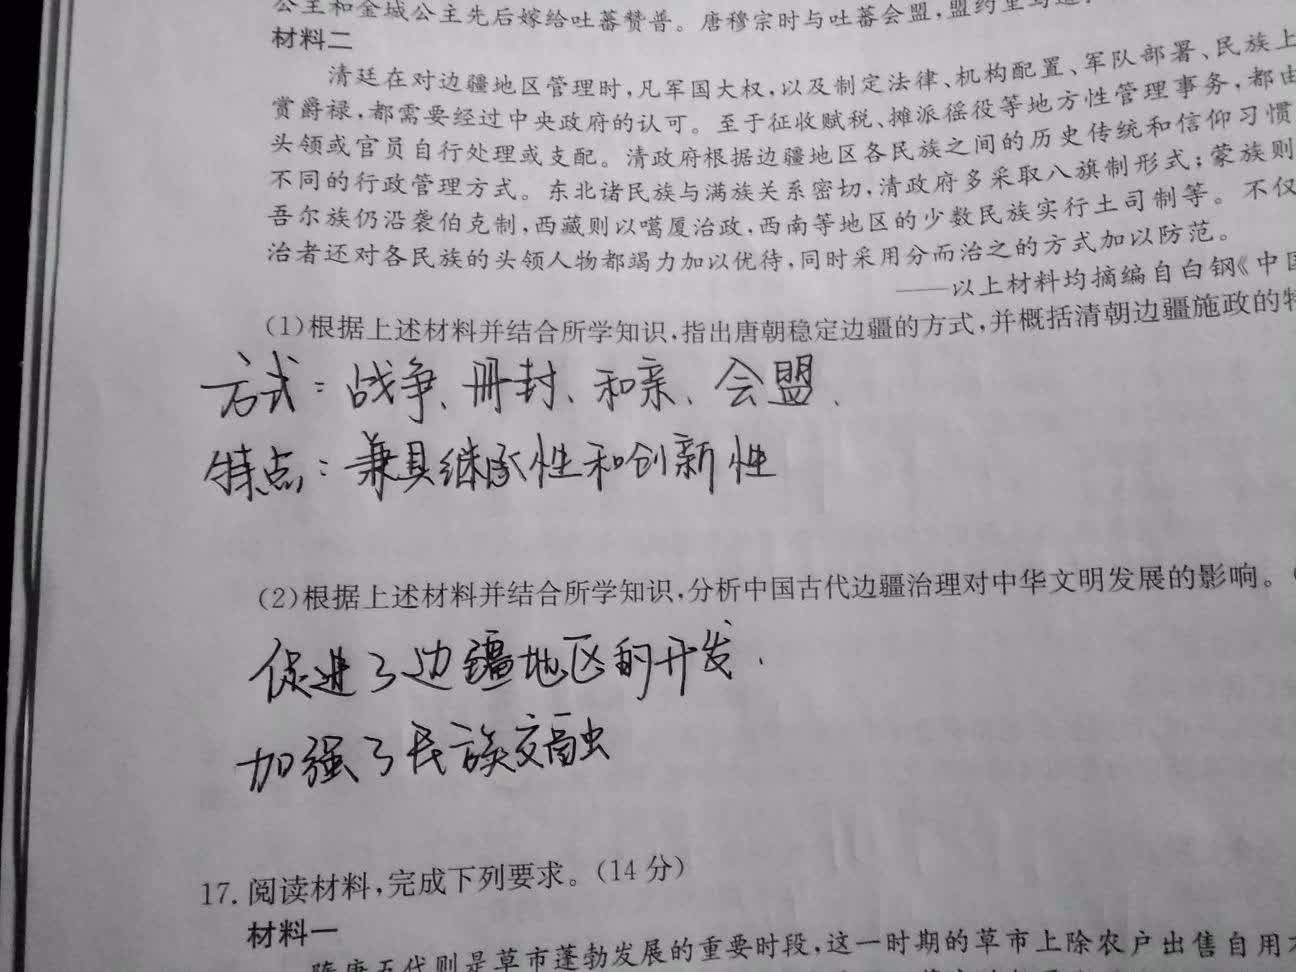 公主和金城公主先后嫁给吐蕃赞普。唐穆宗时与吐蕃会盟,盟约重
材料二
清廷在对边疆地区管理时,凡军国大权,以及制定法律、机构配置、军队部署、民族上
赏爵禄,都需要经过中央政府的认可。至于征收赋税、摊派徭役等地方性管理事务,都由
头领或官员自行处理或支配。清政府根据边疆地区各民族之间的历史传统和信仰习惯
不同的行政管理方式。东北诸民族与满族关系密切,清政府多采取八旗制形式;蒙族则
吾尔族仍沿袭伯克制,西藏则以噶厦治政,西南等地区的少数民族实行土司制等。不仅
治者还对各民族的头领人物都竭力加以优待,同时采用分而治之的方式加以防范。
——以上材料均摘编自白钢《中国
(1)根据上述材料并结合所学知识,指出唐朝稳定边疆的方式,并概括清朝边疆施政的特
方式:战争、册封、和亲、会盟.
特点:兼具继承性和创新性
(2)根据上述材料并结合所学知识,分析中国古代边疆治理对中华文明发展的影响。(
促进了边疆地区的开发.
加强了民族交融
17.阅读材料,完成下列要求。(14分)
材料一
隋唐五代则是草市蓬勃发展的重要时段,这一时期的草市上除农户出售自用